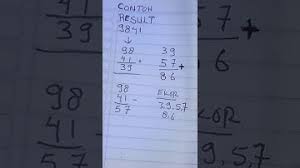 CONTOH
RESULT
9841
↓
98
41 +
39
39
57 +
86
98
41 -
57
EKOR
39.57
86
39.57.